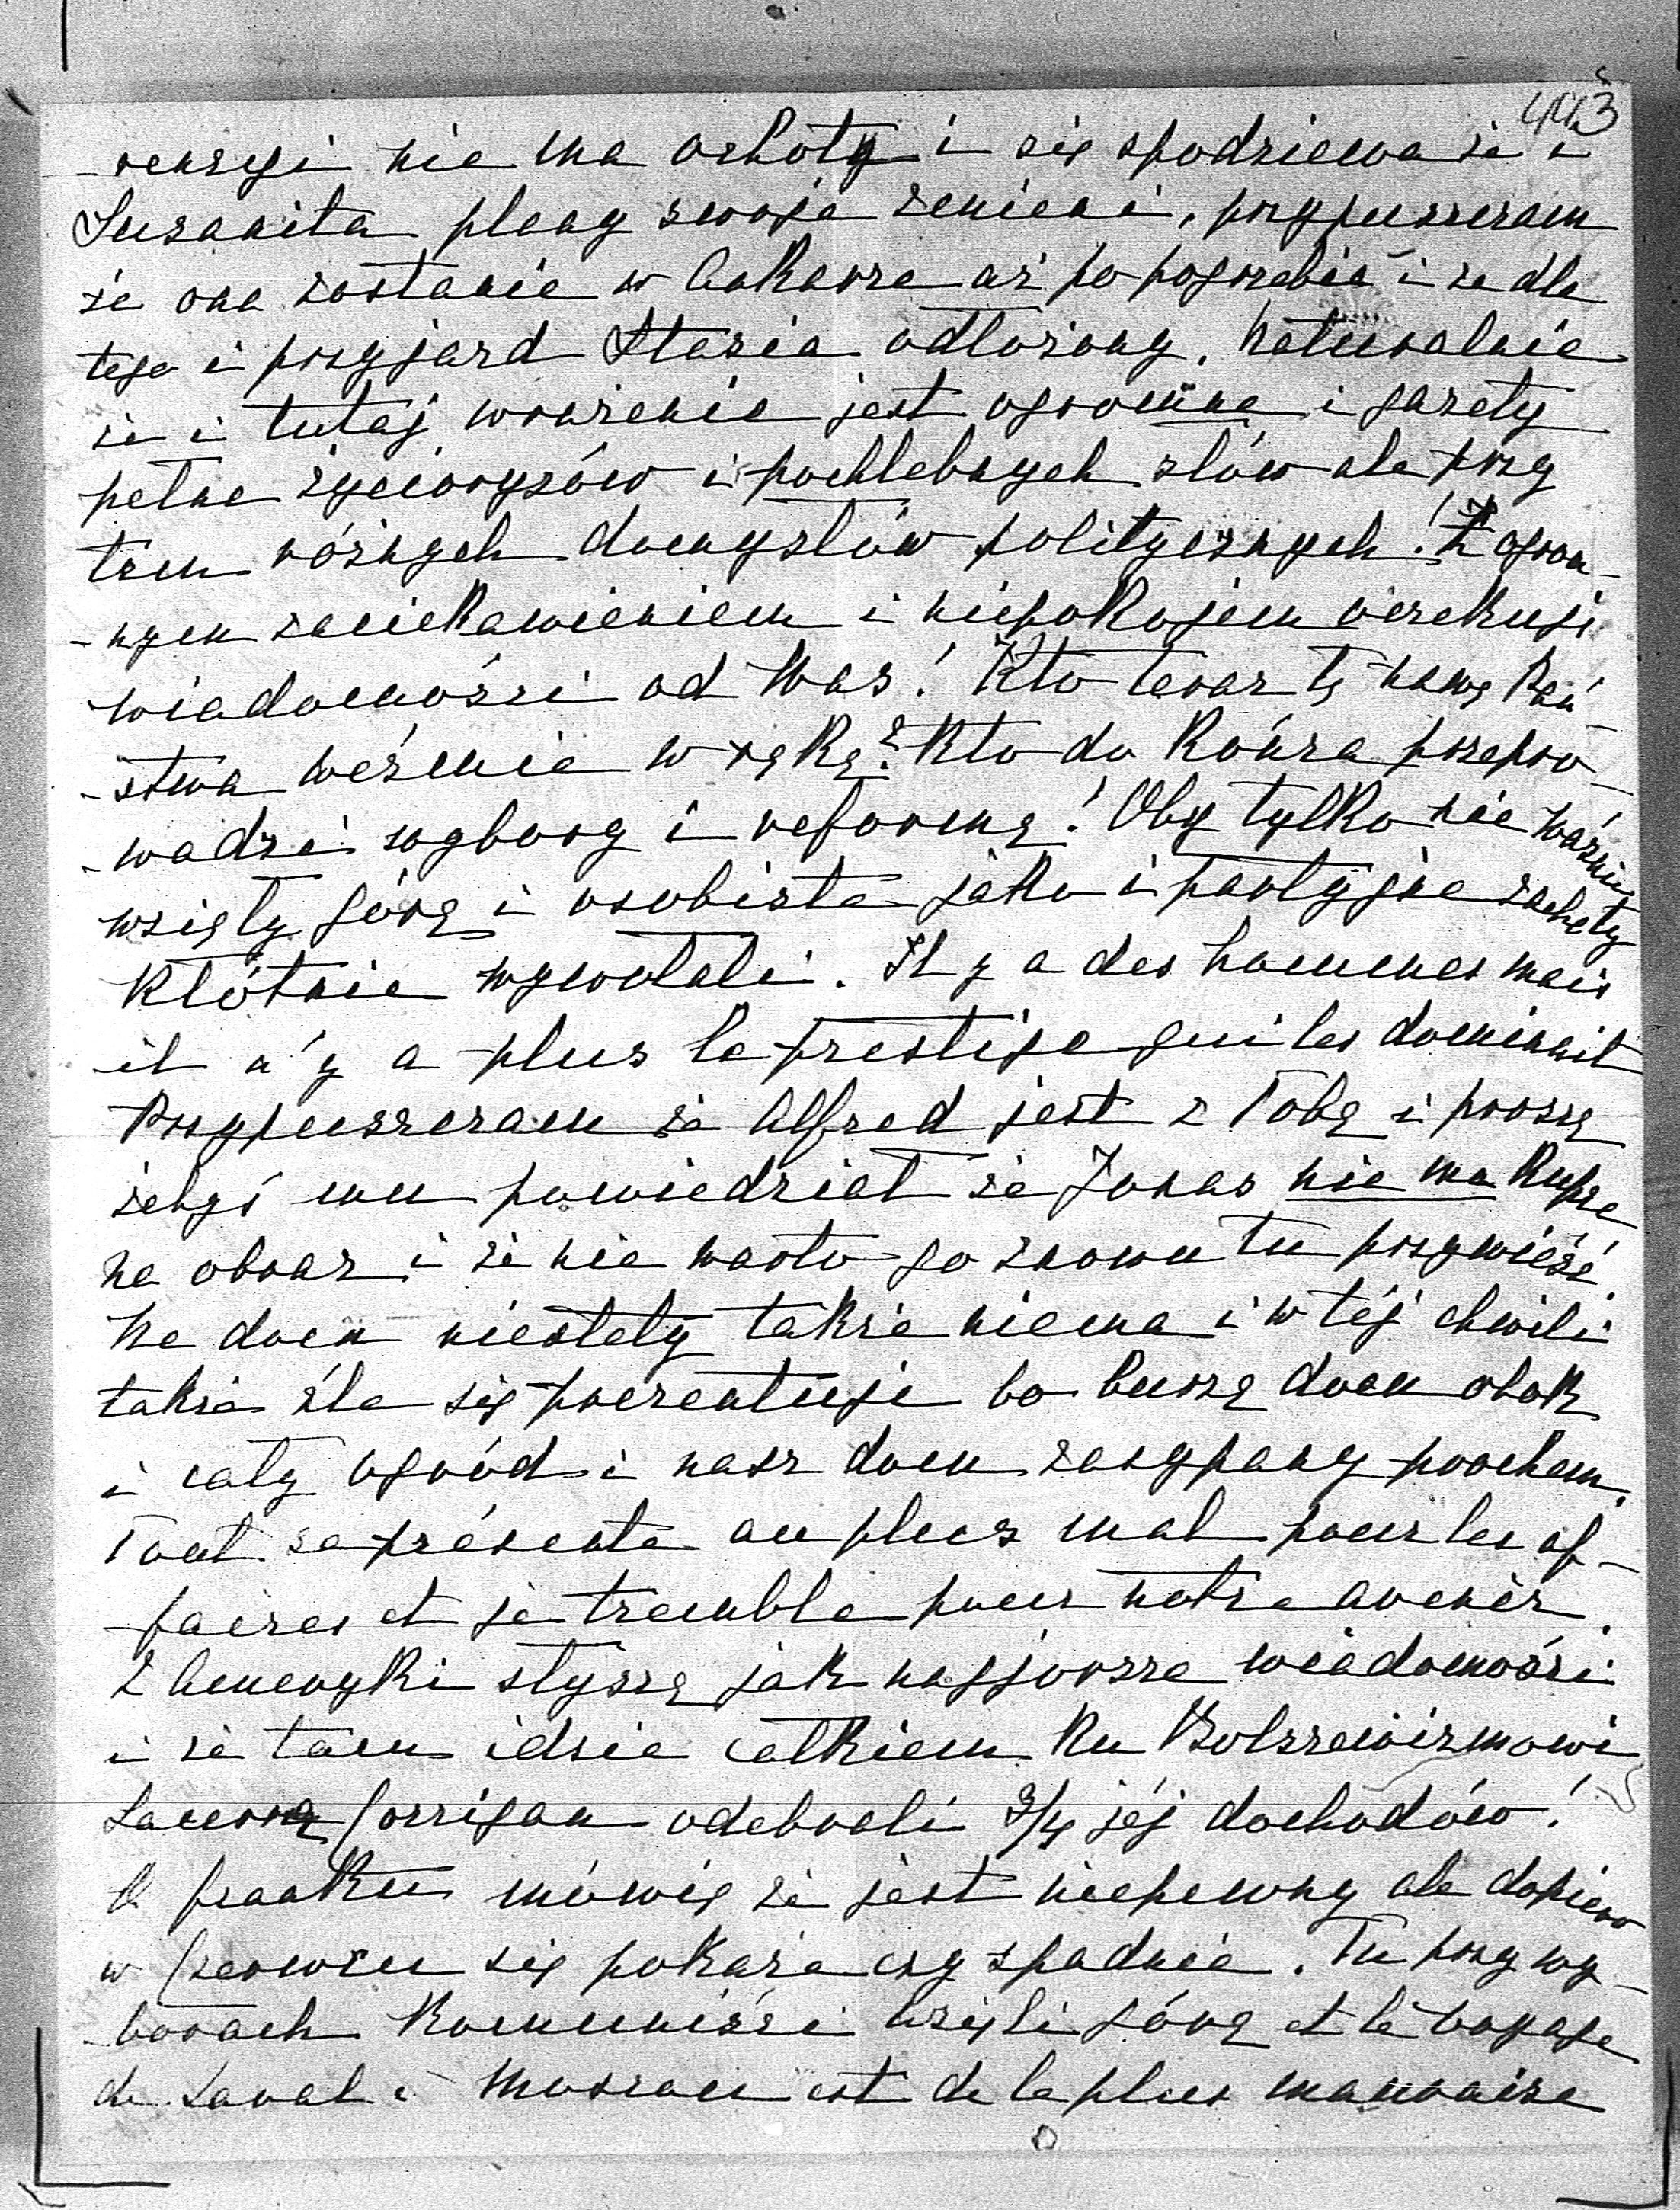 443
-renzyi nie ma ochoty i się spodziewa że i
Susanita plany swoje zmieni, przypuszczam
że ona zostanie w Ankarze aż po pogrzebie i że dla
tego i przyjazd Stasia odłożony. Naturalnie
że i tutaj wrażenie jest ogromne i gazety
pełne życiorysów i pochlebnych słów ale przy
tem różnych domysłów politycznych! Z ogrom-
-nym zaciekawieniem i niepokojem oczekuję
wiadomości od Was! Kto teraz tę nawę Pań-
-stwa weźmie w rękę? Kto do końca przepro-
-wadzi wybory i reformę! Oby tylko nie waśnie
wzięły górę i osobiste jako i partyjne zachęty
kłótnie wywołali. Il y a des hommes mais
il n'y a plus le prestige qui les dominait
Przypuszczam że Alfred jest z Tobą i proszę
żebyś mu powiedział że Jonas nie ma kupca
na obraz i że nie warto go znowu tu przywieść
Na dom niestety także niema i w téj chwili
także źle się prezentuje bo burzą dom obok
i cały ogród i nasz dom zasypany prochem.
Tout se présente au plus mal pour les af-
-faires et je tremble pour notre avenir.
Z Ameryki słyszę jak najgorsze wiadomości
i że tam idzie całkiem ku Bolszewizmowi
Laurą Corrigan odebrali 3/4 jéj dochodów!
O franku mówią że jest niepewny ale dopiero
w Czerwcu się pokaże czy spadnie. Tu przy wy-
-borach Komuniści wzięli górę et le voyage
de Laval à Moscou est de la plus mauvaise